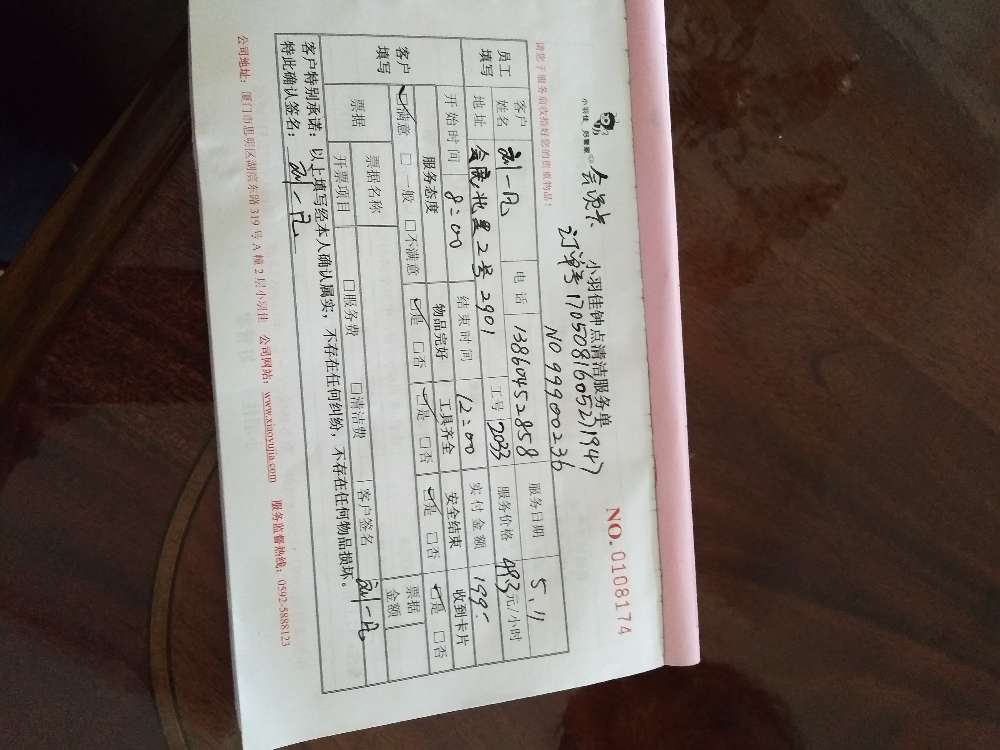 小羽佳 尽管家
会员卡
小羽佳钟点清洁服务单
NO.0108174
订单号170508160521947
NO 99900236
请您于服务前收拾好您的贵重物品！
员工填写 客户姓名 刘一凡 电话 13860452858 服务日期 5.11
地址 金院北里2号2901 工号 2033 服务价格 493元/小时
开始时间 8:00 结束时间 12:00 实付金额 199.-
客户填写 服务态度 物品完好 工具齐全 安全结束 收到卡片
☑满意 □一般 □不满意 ☑是 □否 ☑是 □否 ☑是 □否 ☑是 □否
票据 票据名称 票据金额
开票项目 □服务费 □清洁费 客户签名 刘一凡
客户特别承诺：以上填写经本人确认属实，不存在任何纠纷，不存在任何物品损坏。
特此确认签名：刘一凡
公司地址：厦门市思明区湖滨东路319号A幢2层小羽佳 公司网站：www.xiaoyujia.com 服务监督热线：0592-5888123